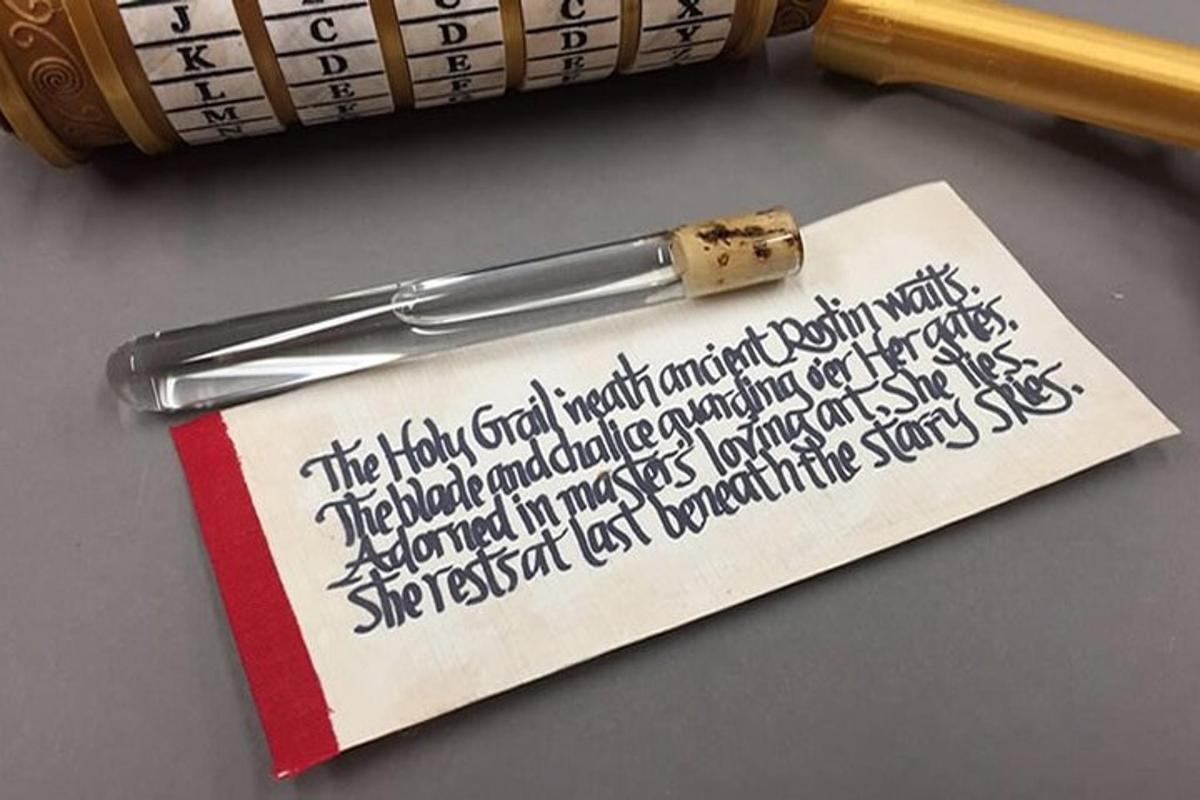 J
K
L
M
N
C
D
E
F
C
D
E
F
C
D
E
X
Y
Z
The Holy Grail 'neath ancient Roslin waits.
The blade and chalice guarding o'er Her gates.
Adorned in masters' loving art, She lies.
She rests at last beneath the starry skies.